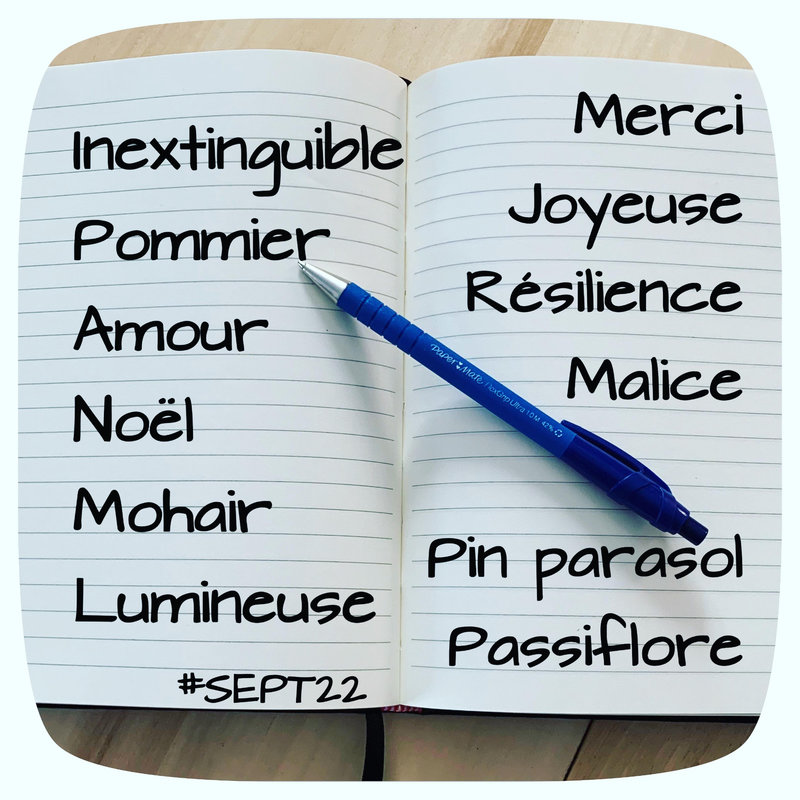 Inextinguible
Pommier
Amour
Noël
Mohair
Lumineuse
#SEPT22
Merci
Joyeuse
Résilience
Malice
Pin parasol
Passiflore
Paper Mate FlexGrip Ultra 1.0 M 42%